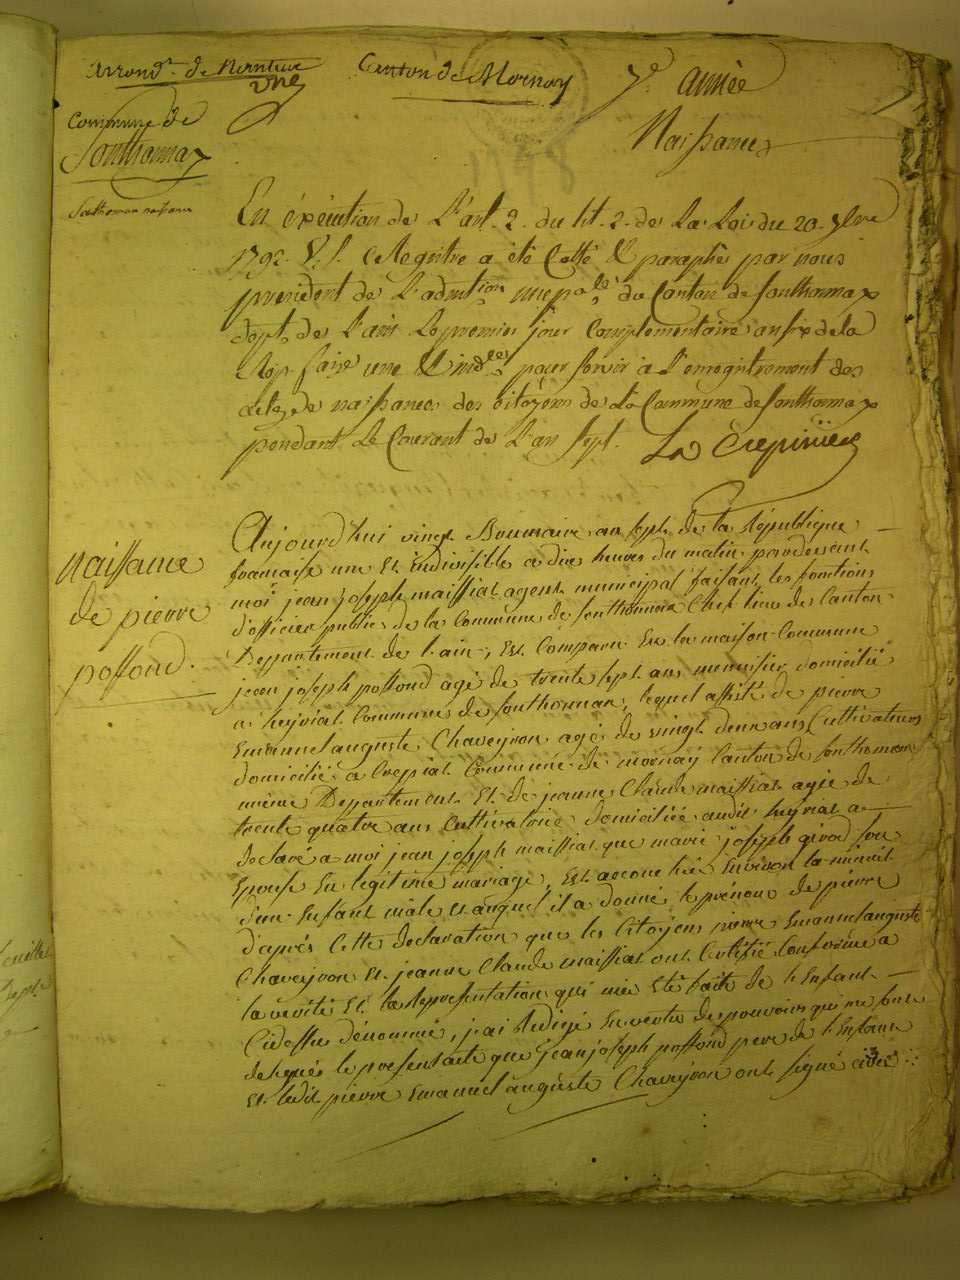 Arrond.t de Nanteua
Canton de Mornay
7e année
Commune de
Sonthonnax
Naissances
Sonthonnax naissances
En éxécution de L'art. 2. du tit. 2. de La Loi du 20. 7bre
1792. V. S. ce Registre a été Cotté & paraphé par nous
president de L'admtion. mcpale. du Canton de Sonthonnax
dept. de L'ain Le premier jour Complementaire an six de la
Rep. faise une & indle. pour servir à L'enregistrement des
actes de naissances des citoyens de La Commune de Sonthonnax
pendant Le Courant de L'an Sept.
La Crepiniere
naissance
de pierre
poffond.
Aujourd'hui vingt Brumaire an sept de la République
francaise une et indivisible a dix heures du matin pardevant
moi jean joseph maissiat agent municipal faisant les fonctions
d'officier public de la Commune de Sonthonnax Chef lieu de Canton
Departement de l'ain, est Comparu En la maison Commune
jean joseph poffond agé de trente sept ans menuisier domicilié
a heyriat Commune de sonthonnax, lequel assisté de pierre
Emanuel auguste Chaveyron agé de vingt deux ans Cultivateurs
domicilié a Crepiat Commune de mornay Canton de sonthonnax
même Departement et de jeanne Claude maissiat agée de
trente quatre ans Cultivatrice domiciliée audit heyriat a
declaré a moi jean joseph maissiat que marie joseph girod son
Epouse En legitime mariage, est accouchée Environ la minuit
d'un Enfant male et auquel il a donné le prénom de pierre
d'aprés Cette declaration que les Citoyens pierre Emanuel auguste
Chaveyron et jeanne Claude maissiat ont Certifié Conforme a
la verité et la Representation qui m'a Eté faite de l'Enfant
Cidessus dénommé, j'ai Redigé En vertu des pouvoirs qui me sont
delegués le present acte que jean joseph poffond pere de l'Enfant
et ledit pierre Emanuel auguste Chaveyron ont signé